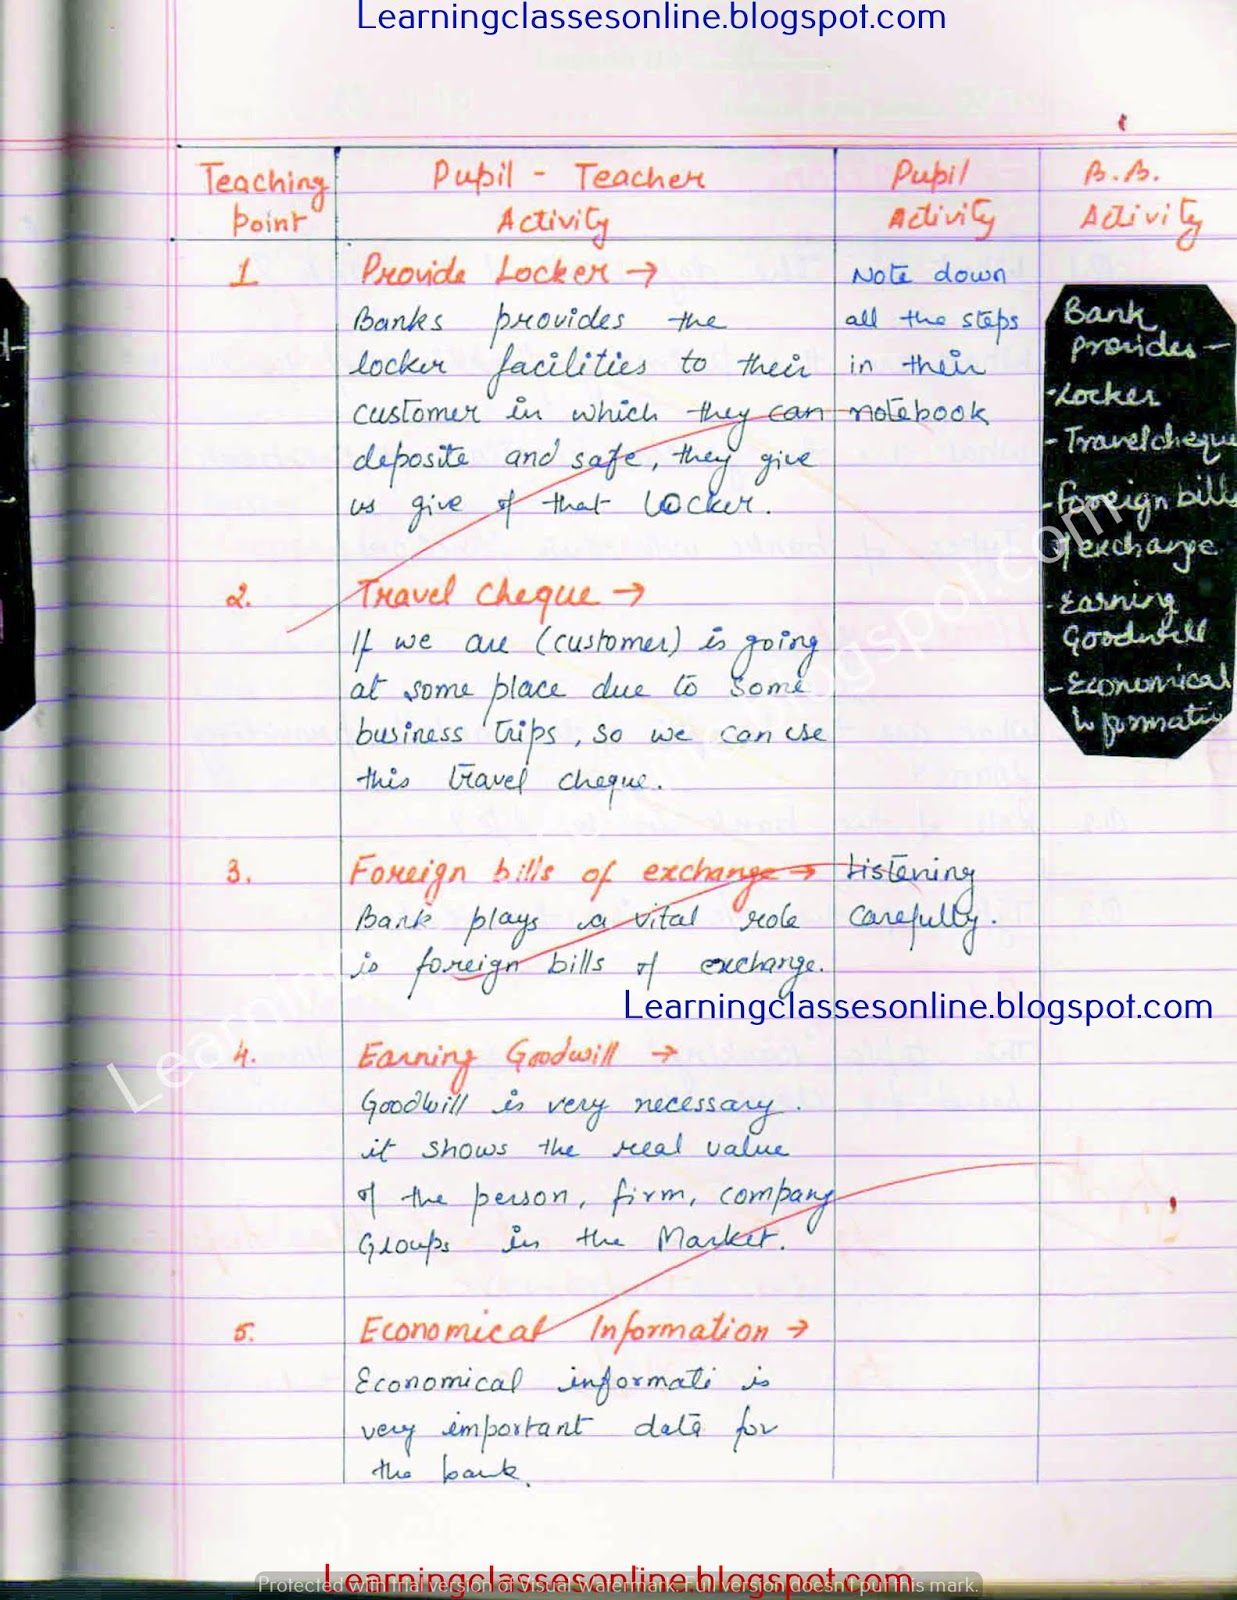 Learningclassesonline.blogspot.com
Teaching point
Pupil - Teacher Activity
Pupil Activity
B.B. Activity
1
Provide Locker →
Banks provides the
locker facilities to their
customer in which they can
deposite and safe, they give
us give of that Locker.
Note down
all the steps
in their
notebook
Bank
provides -
- Locker
- Travel cheque
- Foreign bills
of exchange
- Earning
Goodwill
- Economical
Informatio
2.
Travel cheque →
If we are (customer) is going
at some place due to some
business trips, so we can use
this travel cheque.
3.
Foreign bills of exchange →
Bank plays a vital role
is foreign bills of exchange.
Listening
carefully.
Learningclassesonline.blogspot.com
4.
Earning Goodwill →
Goodwill is very necessary.
it shows the real value
of the person, firm, company
Groups in the Market.
5.
Economical Information →
Economical informati is
very important data for
the bank.
Learningclassesonline.blogspot.com
Protected with trial version of Visual Watermark. Full version doesn't put this mark.